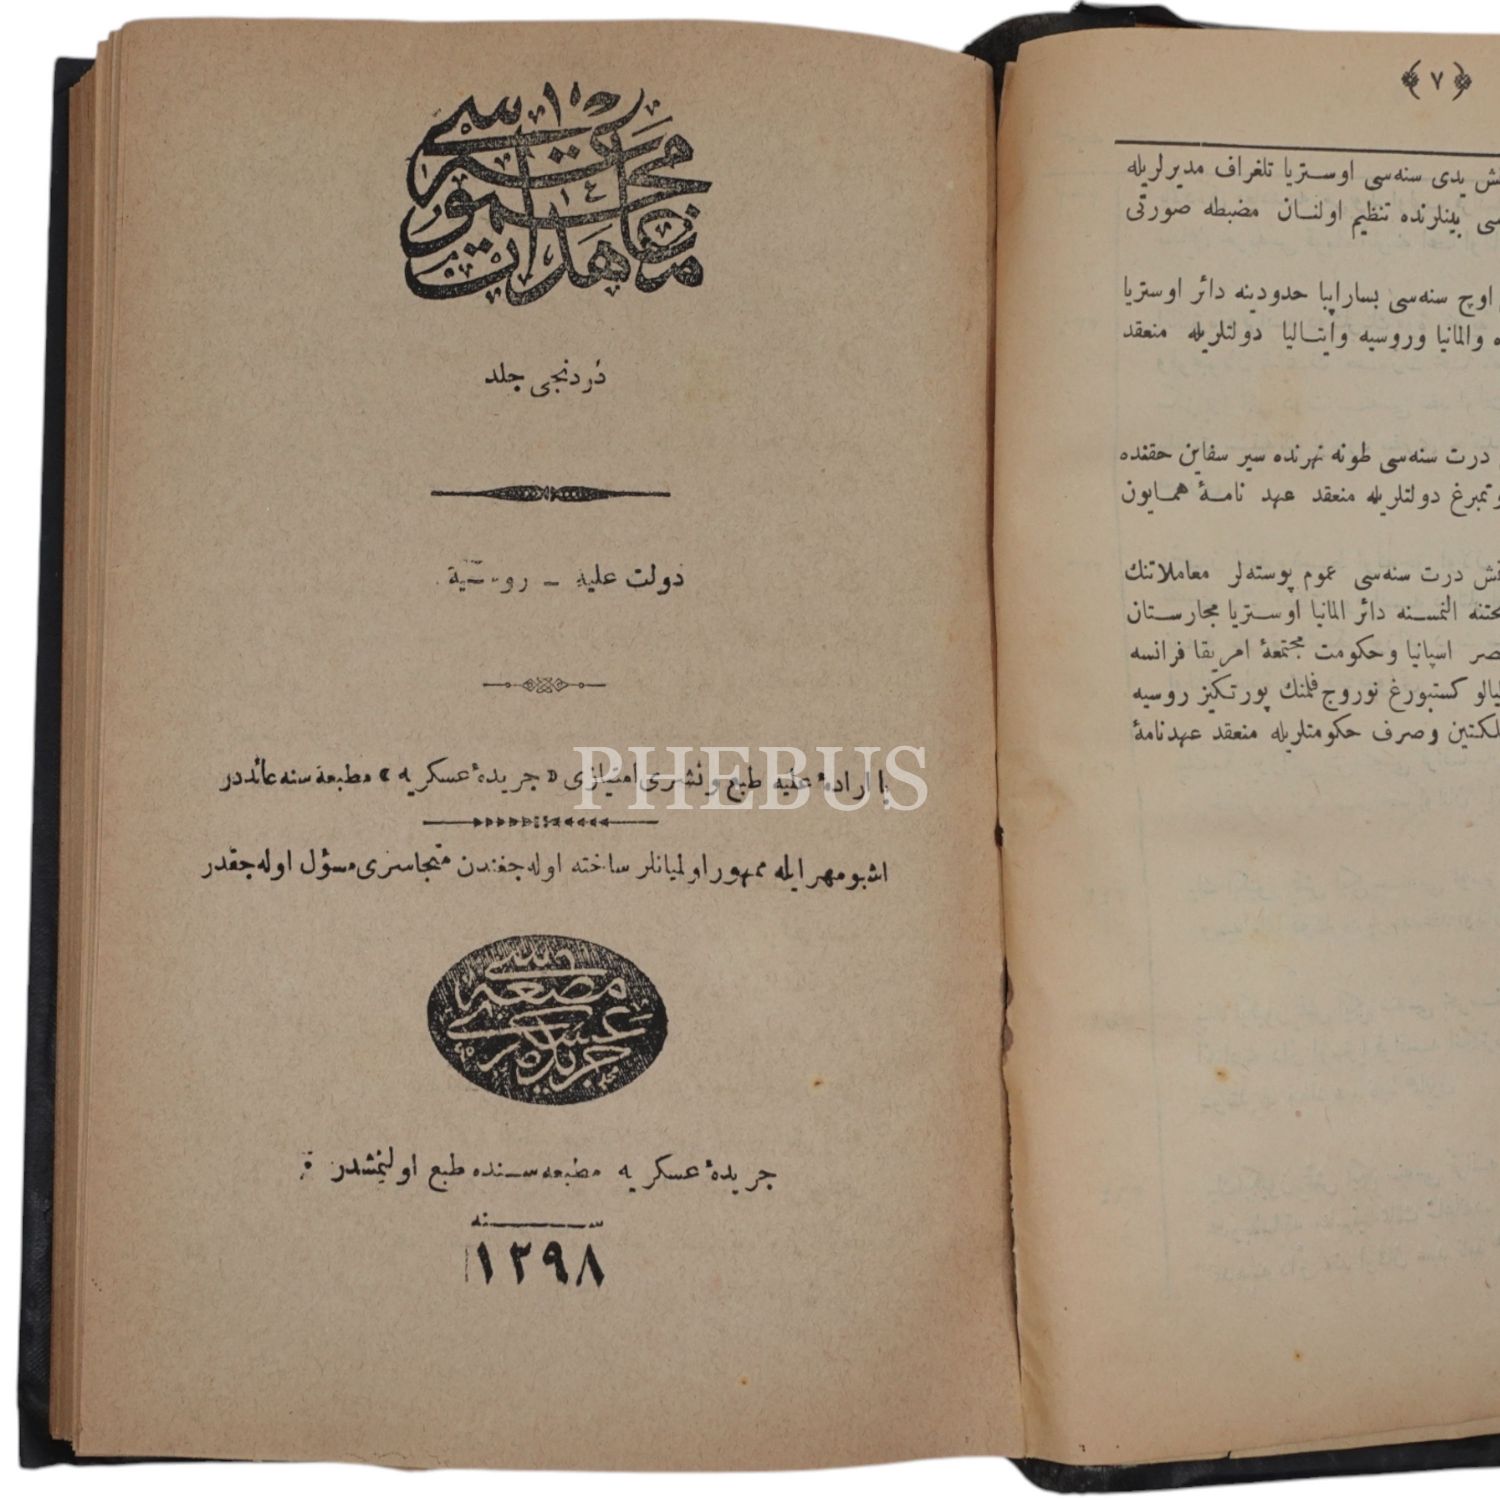 معاهدات مجموعه سی
دردنجی جلد
دولت علیه – روسیة
با ارادهٔ علیه طبع ونشری امتیازی « جریدهٔ عسکریه » مطبعه سنه عائددر
اشبو مهر ایله ممهور اولمیانلر ساخته اوله جغندن متجاسری مسؤل اوله جقدر
جریدهٔ عسکریه مطبعه سی
جریدهٔ عسکریه مطبعه سنده طبع اولنمشدر
سنه
١٢٩٨
PHEBUS
﴿ ٧ ﴾
یدی سنه سی اوستریا تلغراف مدیرلریله
بینلرنده تنظیم اولنان مضبطه صورتی
اوچ سنه سی بسارابیا حدودینه دائر اوستریا
والمانیا وروسیه وایتالیا دولتلریله منعقد
درت سنه سی طونه نهرنده سیر سفاین حقنده
دولتلریله منعقد عهد نامهٔ همایون
درت سنه سی عموم پوسته لر معاملاتنك
تحتنه النمسنه دائر المانیا اوستریا مجارستان
اسپانیا وحکومت مجتمعهٔ امریقا فرانسه
نوروج فلمنك پورتکیز روسیه
وصرف حکومتلریله منعقد عهدنامهٔ